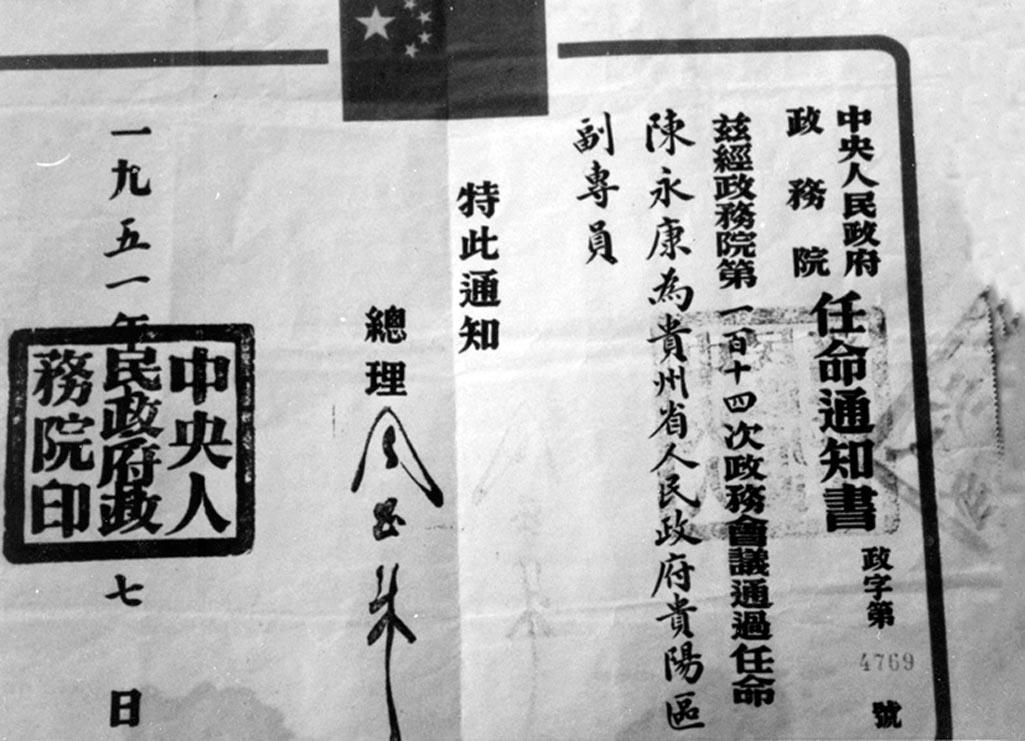 中央人民政府
政務院
任命通知書
政字第4769號
茲經政務院第一百十四次政務會議通過任命
陳永康為貴州省人民政府貴陽區
副專員
特此通知
總理
一九五一年
七日
中央人民政府政務院印